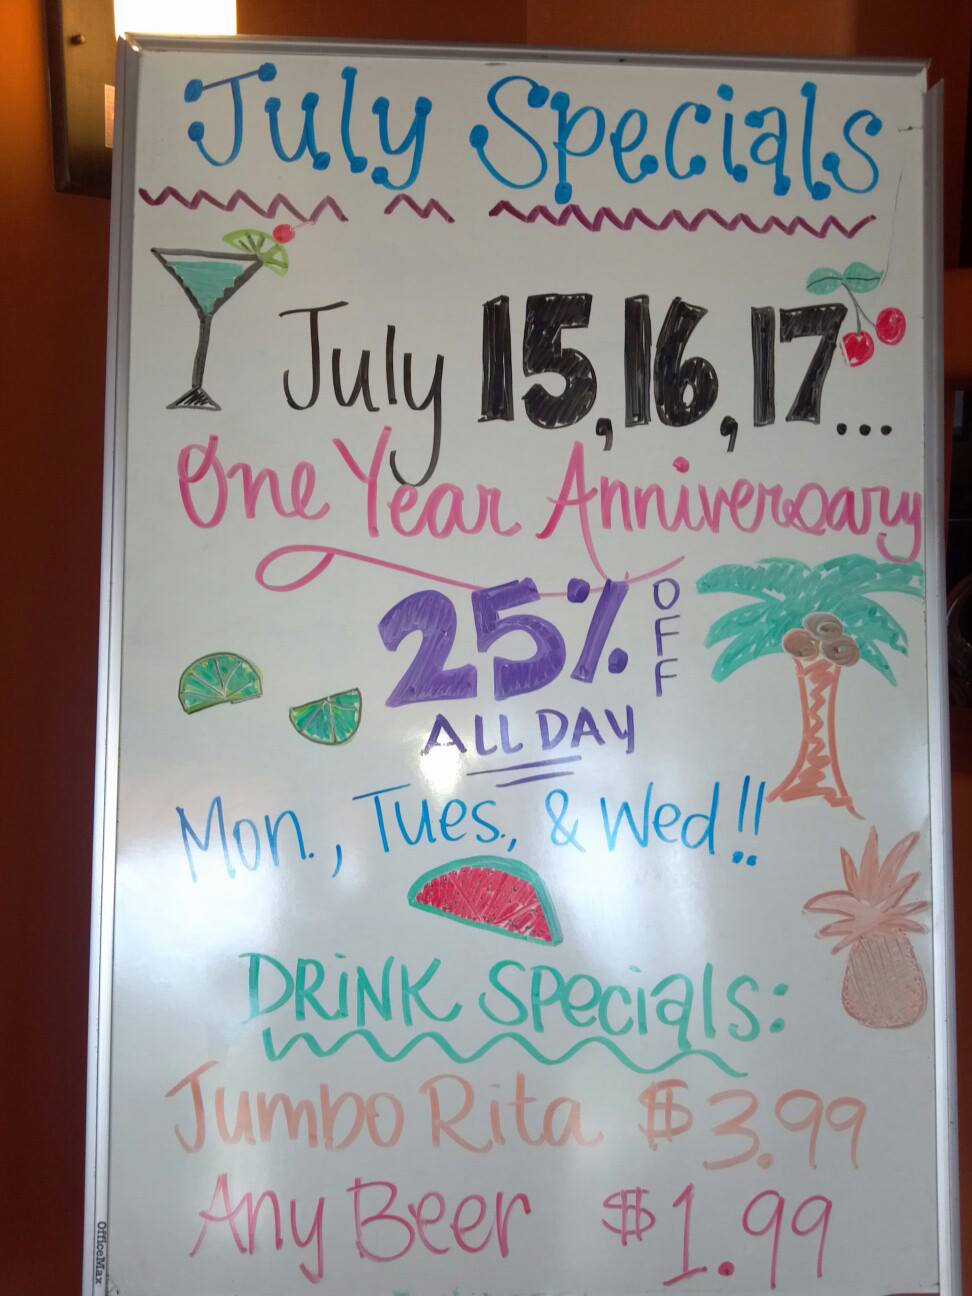 July Specials
July 15, 16, 17...
One Year Anniversary
25% OFF
ALL DAY
Mon., Tues., & Wed!!
DRiNK Specials:
Jumbo Rita $3.99
Any Beer $1.99
OfficeMax